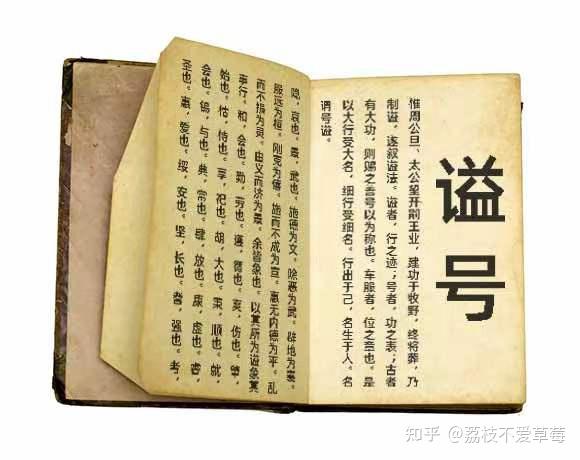 谥号
惟周公旦、太公望开嗣王业，建功于牧野，终将葬，乃
制谥，遂叙谥法。谥者，行之迹；号者，功之表；古者
有大功，则赐之善号以为称也。车服者，位之章也。是
以大行受大名，细行受细名。行出于己，名生于人。名
谓号谥。
隐，哀也。景，武也。施德为文。除恶为武。辟地为襄。
服远为桓。刚克为僖。施而不成为宣。惠无内德为平。乱
而不损为灵。由义而济为景。余皆象也。以其所为谥象其
事行。和，会也。勤，劳也。遵，循也。爽，伤也。肇，
始也。怙，恃也。享，祀也。胡，大也。秉，顺也。就，
会也。锡，与也。典，常也。肆，放也。康，虚也。睿，
圣也。惠，爱也。绥，安也。坚，长也。耆，强也。考，
知乎 @荔枝不爱草莓